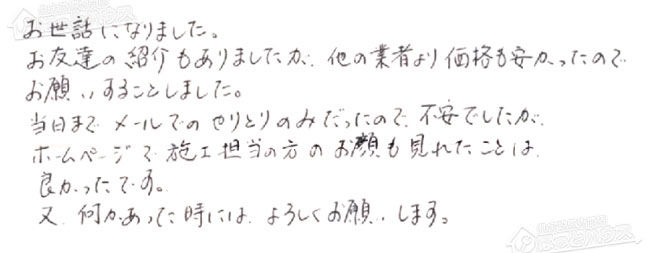 お世話になりました。
お友達の紹介もありましたが、他の業者より価格も安かったので
お願いすることしました。
当日まで メールでのやりとりのみだったので、不安でしたが、
ホームページで 施工担当の方のお顔も見れたことは
良かったです。
又、何かあった時には、よろしくお願いします。